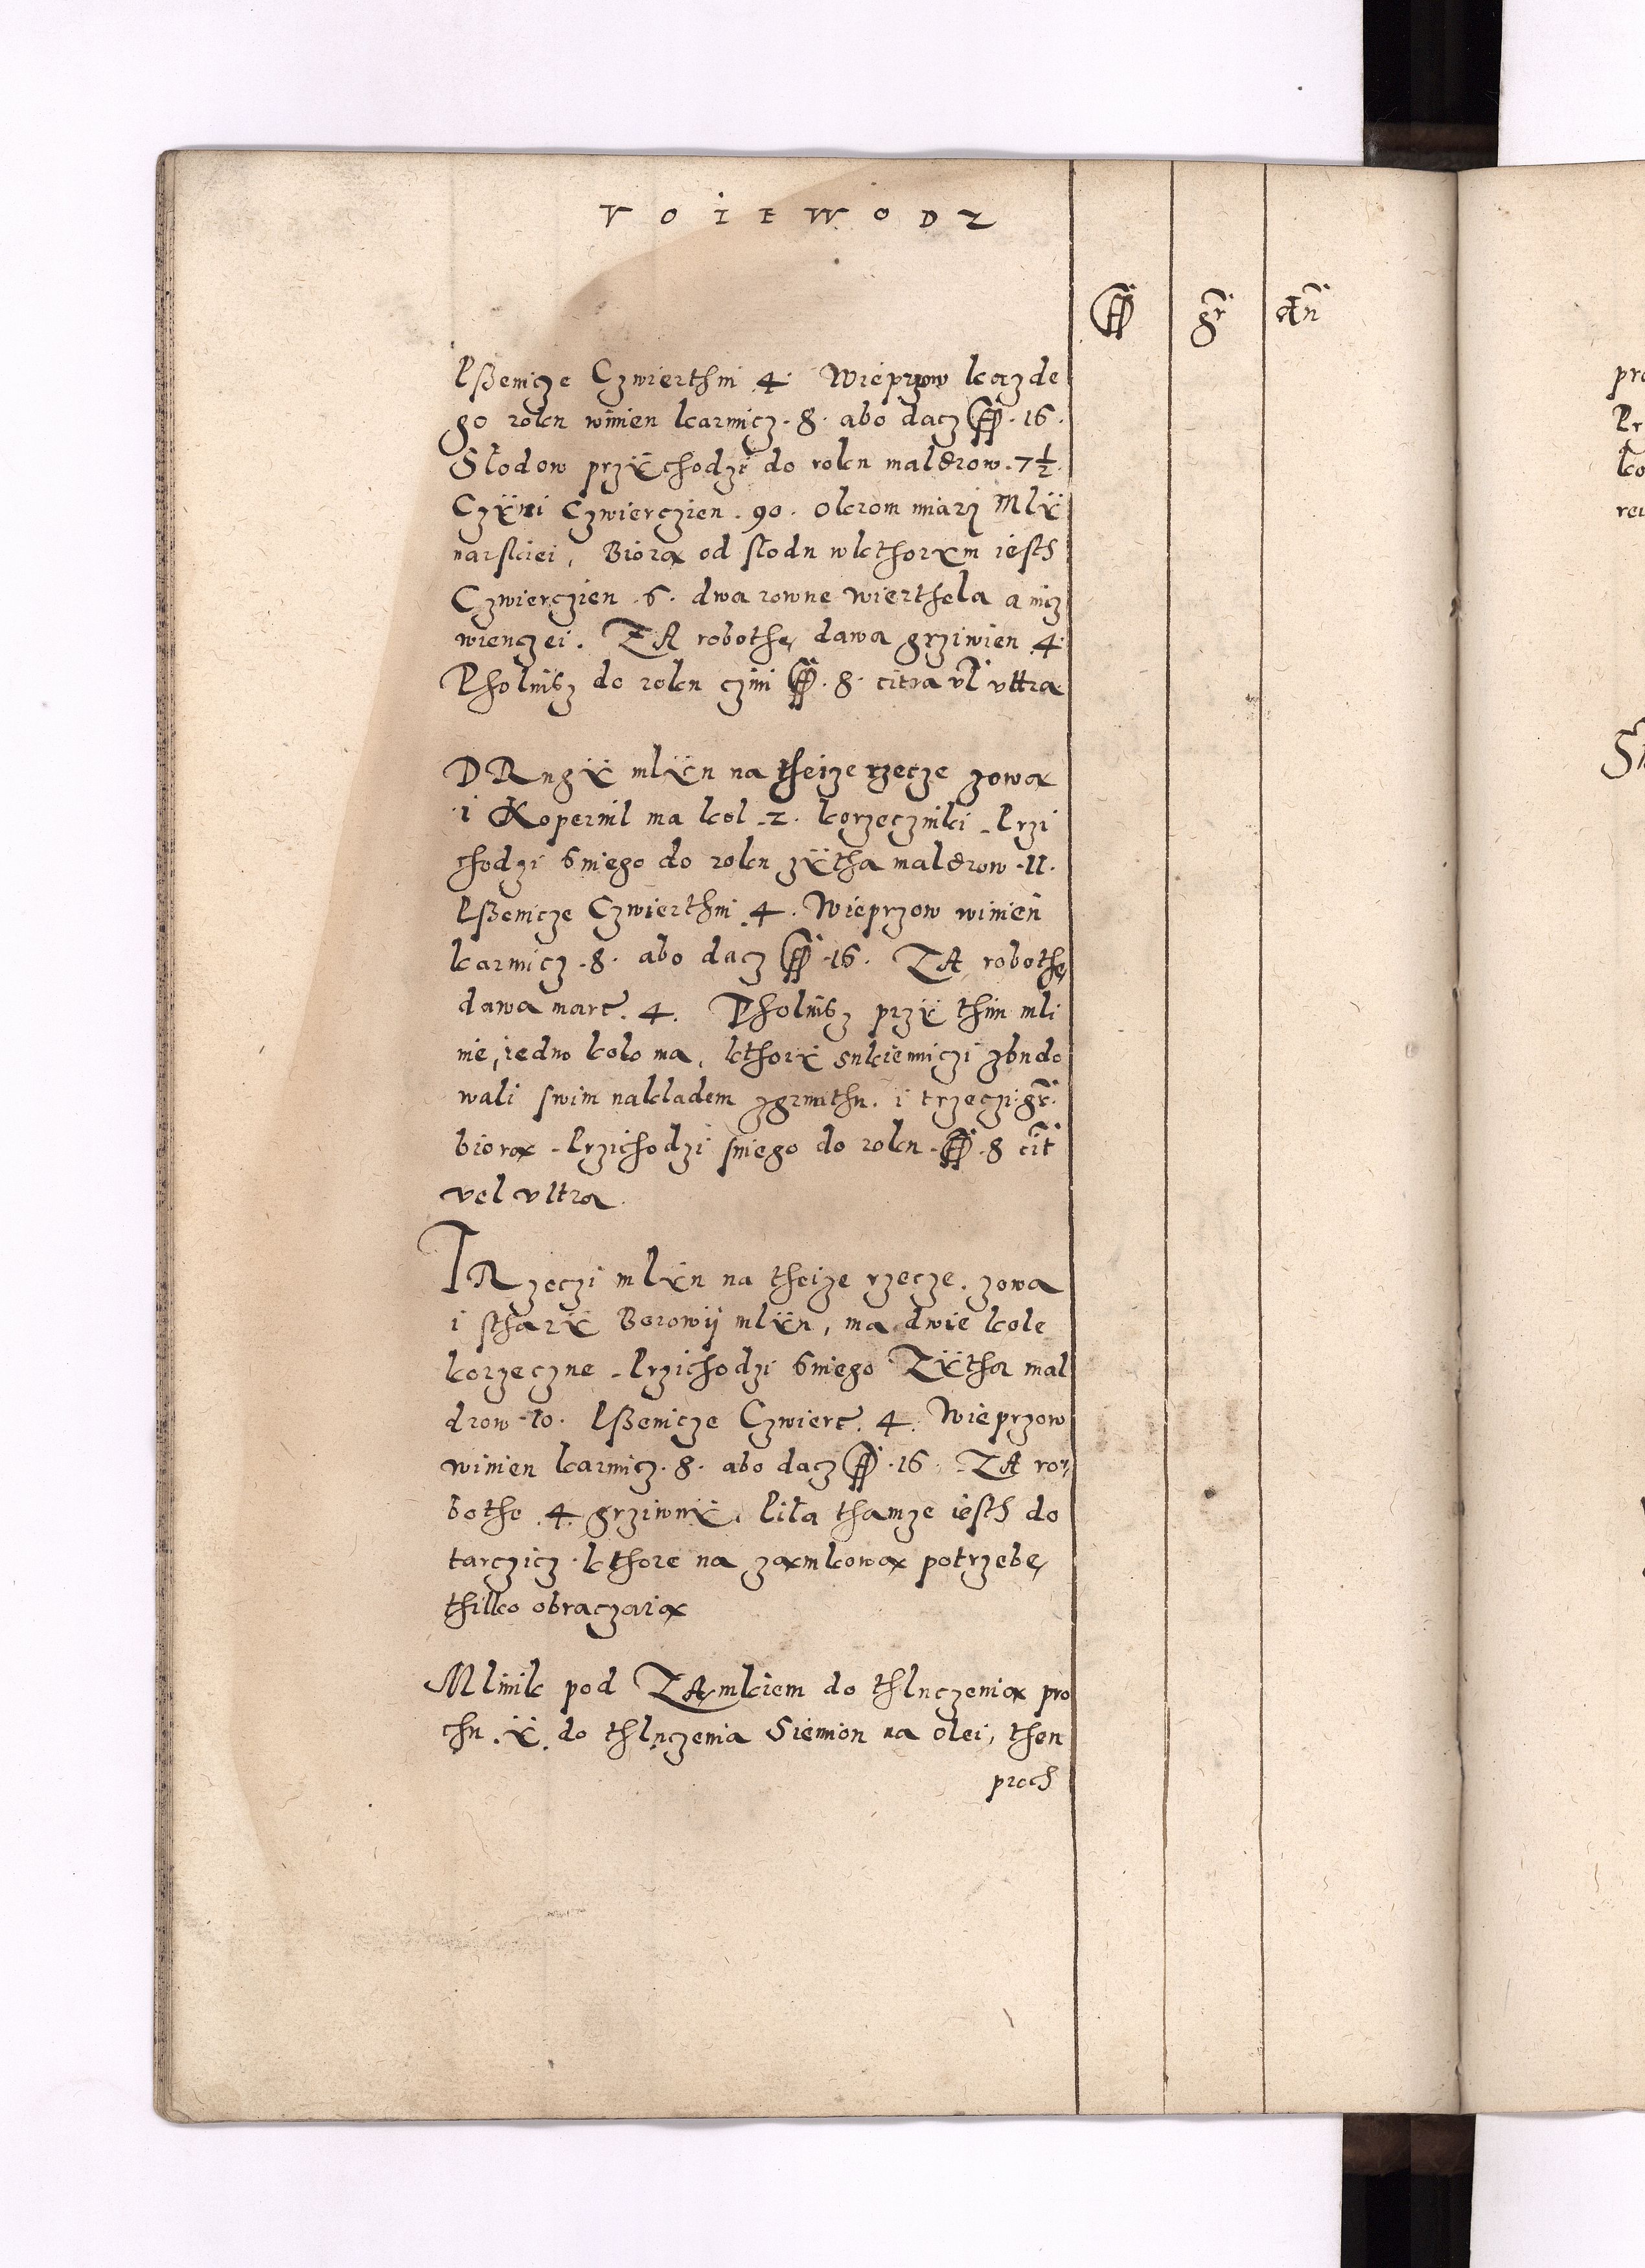 VOIEWODZ
ff gr dn
Pßenicze Czwierthni 4. Wieprzow kazde
go roku winien karmicz .8. abo dacz ff .16.
Slodow przÿchodzi do roku maldrow .7½.
Czÿni Czwierczien .90. Okrom miarÿ Mlÿ
narskiei, Biorą od slodu wkthorÿm iesth
Czwierczien .6. dwa rowne wierthela a nicz
wienczei. ZA robothę dawa grziwien 4.
Pholusz do roku czini ff .8. citra vl vltra
DRugÿ mlÿn na theize rzecze zową
i Kopernik ma kol .2. korzeczniki Przi
chodzi sniego do roku zÿtha maldrow .11.
Pßenicze Czwierthni 4. Wieprzow winien
karmicz .8. abo dacz ff .16. ZA robothę
dawa marc. 4. Pholusz przÿ thim mli
nie, iedno kolo ma, kthorÿ sukienniczi zbudo
wali swim nakladem zgrunthu. i trzeczi gr.
biorą Przichodzi sniego do roku ff .8 cit
vel vltra
TRzeczi mlÿn na theize rzecze. zowa
i stharÿ Borowÿ mlÿn, ma dwie kole
korzeczne Przichodzi sniego Zÿtha mal
drow .10. Pßenicze Czwierc. 4. Wieprzow
winien karmicz .8. abo dacz ff .16. ZA ro
bothe .4. grziwnÿ. Piła thamze iesth do
tarczicz kthore na zamkową potrzebę
thilko obraczaią
Mlinik pod ZAmkiem do thluczenia pro
chu .ÿ. do thluczenia Siemion na olei, then
proch